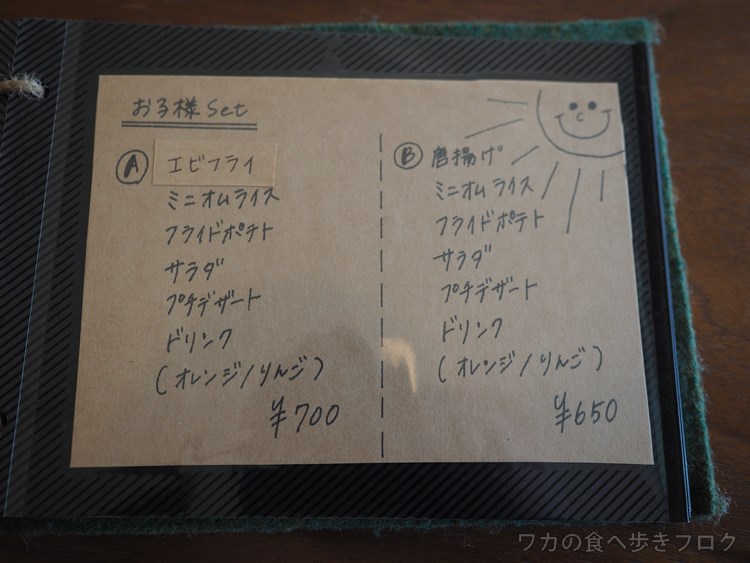 お子様Set
Ⓐ エビフライ
ミニオムライス
フライドポテト
サラダ
プチデザート
ドリンク
(オレンジ/りんご)
¥700
Ⓑ 唐揚げ
ミニオムライス
フライドポテト
サラダ
プチデザート
ドリンク
(オレンジ/りんご)
¥650
ワカの食べ歩きブログ